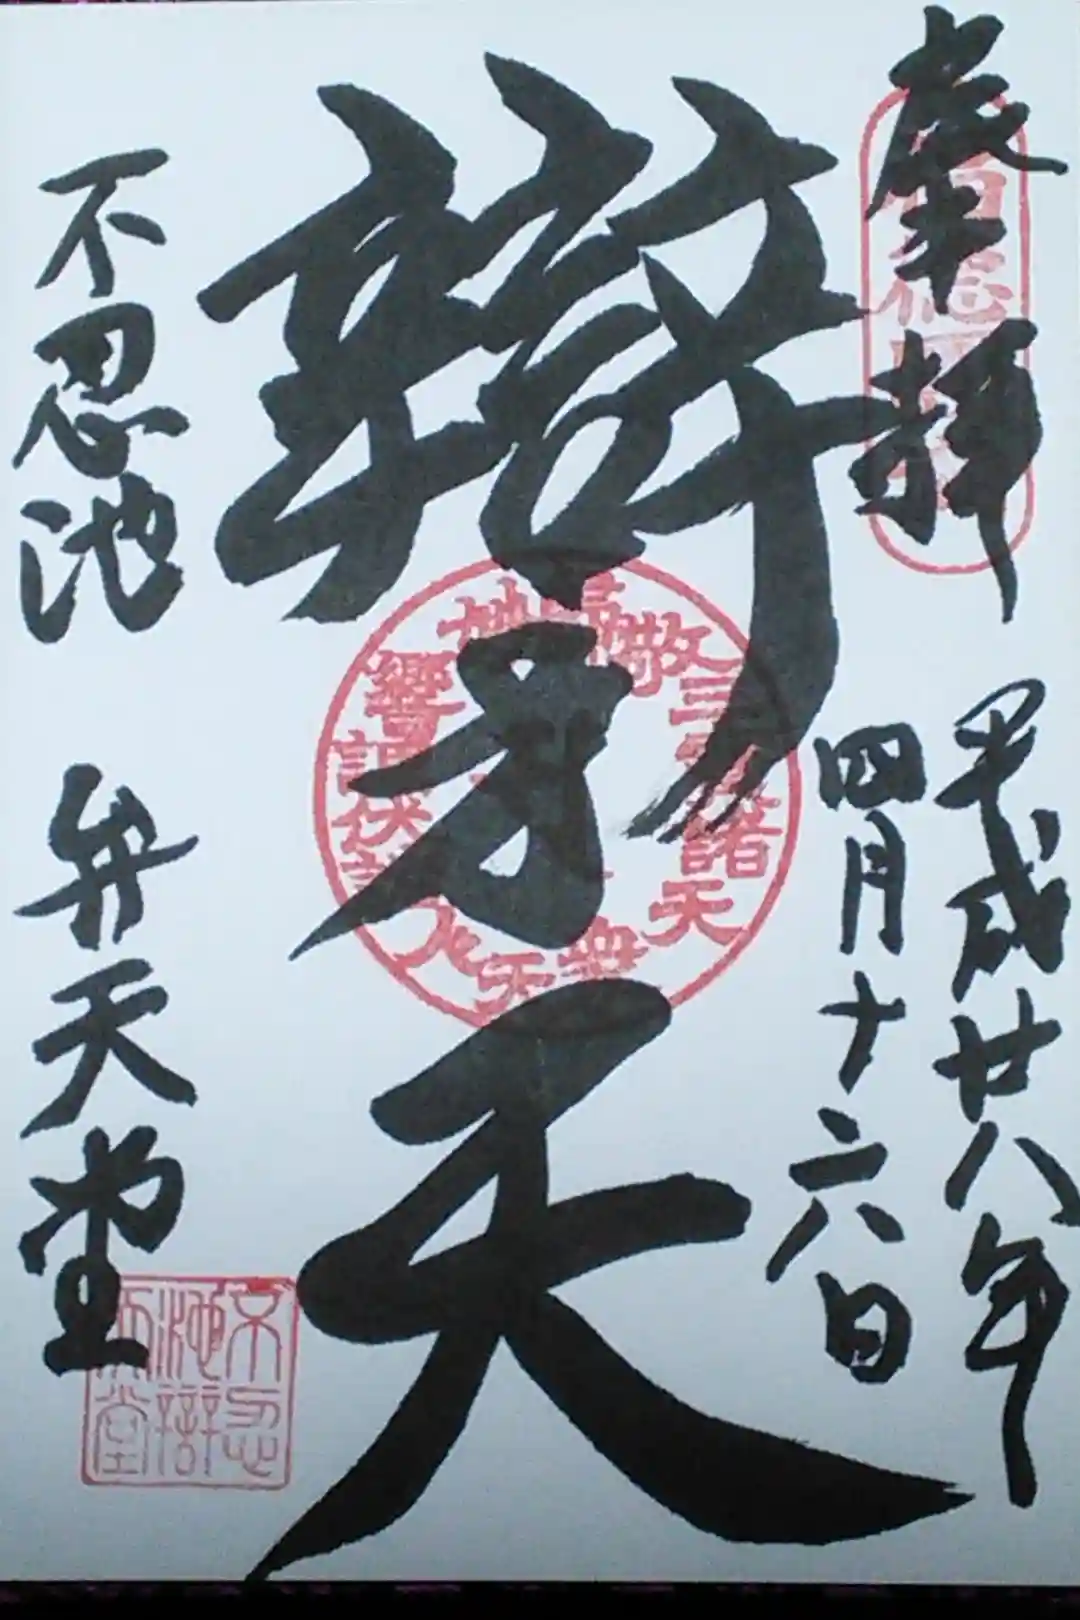 奉拝
平成廿八年
四月十六日
辯才天
不忍池 弁天堂
不忍
池辯
天堂